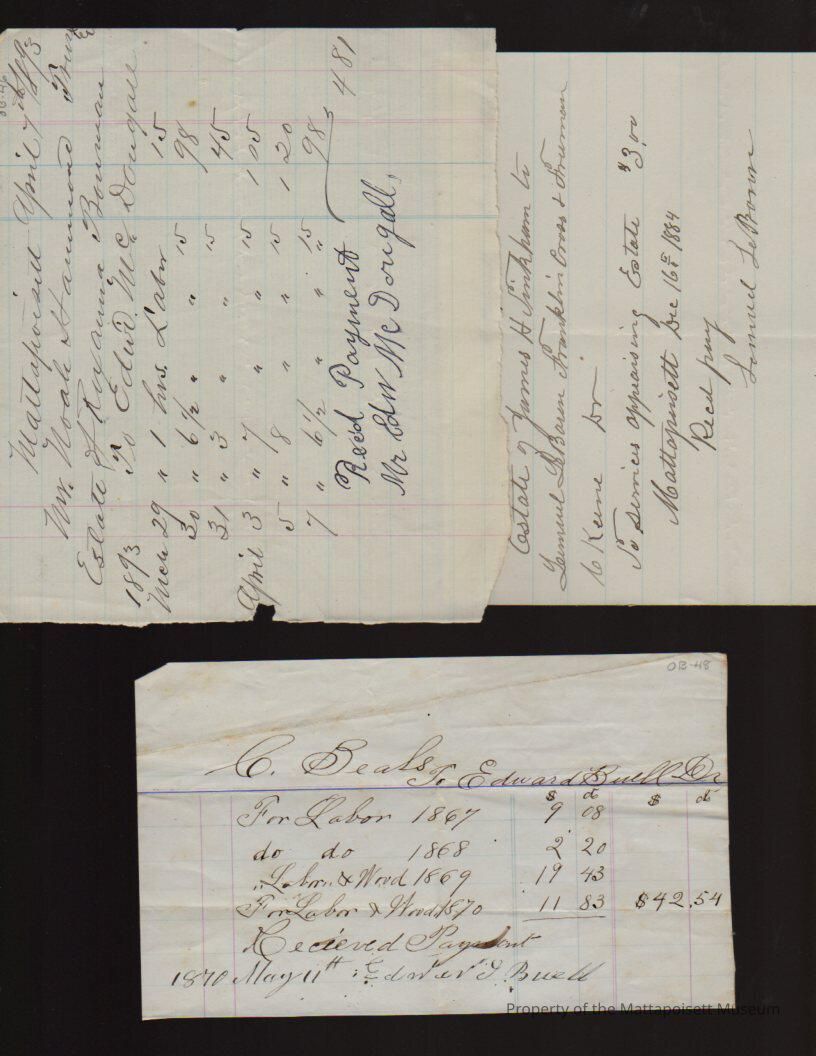 OB-46
Mattapoisett April 7th 1893
Mr. Noah Hammond
Estate of Bowman
To Edw. Mc Dougall
1893
Mch 29 " 1 hrs. Labor 15 15
30 " 6 1/2 " " 15 98
31 " 3 " " 15 45
April 3 " 7 " " 15 1 05
5 " 8 " " 15 1 20
7 " 6 1/2 " " 15 98
4 81
Rec'd Payment
Mr Edw Mc Dougall,
Estate of James H Tinkham to
Lemuel LeBaron Franklin Cross & Truman
Keene Dr
To Services appraising Estate $3.00
Mattapoisett Dec 16th 1884
Recd pay
Lemuel LeBaron
OB-48
C. Beals To Edward Buell Dr
$ ct $ ct
For Labor 1867 9 08
do do 1868 2 20
" Labor & Wood 1869 19 43
For Labor & Wood 1870 11 83 $42.54
Recieved Payment
1870 May 11th Buell
Property of the Mattapoisett Museum